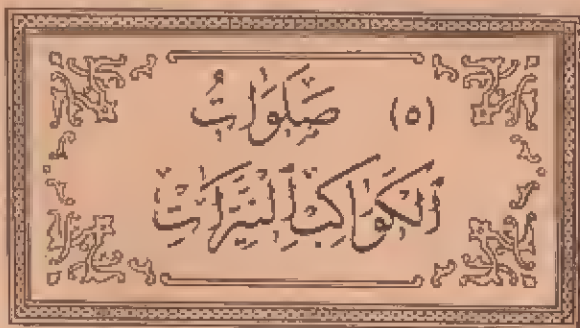 (٥) صَلَوَاتُ
الكَوَاكِبِ النَّيِّرَاتِ